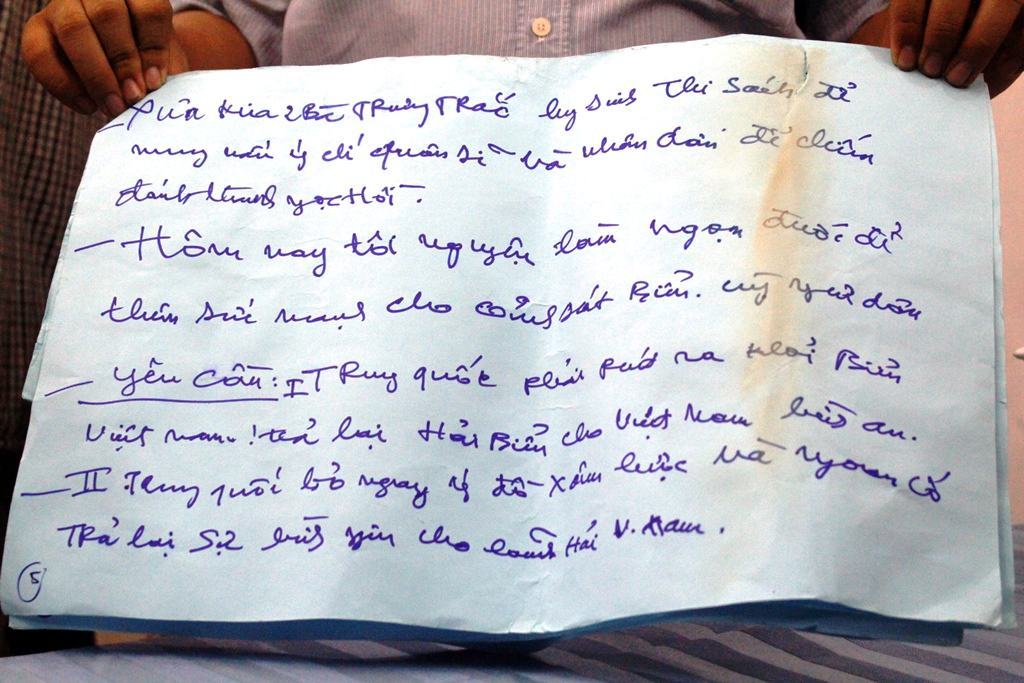 - Xưa kia 2 Bà Trưng Trắc hy sinh Thi Sách để
nung nấu ý chí quân sĩ và nhân dân để chiến
đánh thành ngọc Hồi.
- Hôm nay tôi nguyện làm ngọn đuốc để
thêm sức mạnh cho cảnh sát Biển. ngư dân
- Yêu cầu: I Trung quốc phải rút ra khỏi Biển
Việt nam! trả lại Hải Biển cho Việt Nam bình an.
- II Trung quốc bỏ ngay ý đồ xâm lược và ngoan cố
Trả lại Sự bình yên cho lãnh Hải V. Nam.
5